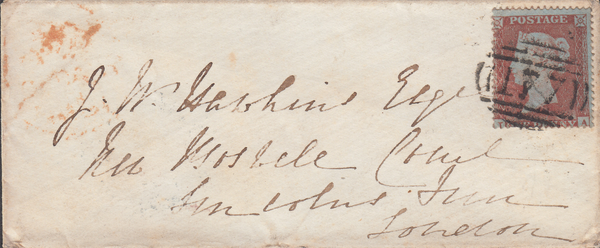 POSTAGE
J. W. Hawkins Esqe
New Court
Lincolns Inn
London